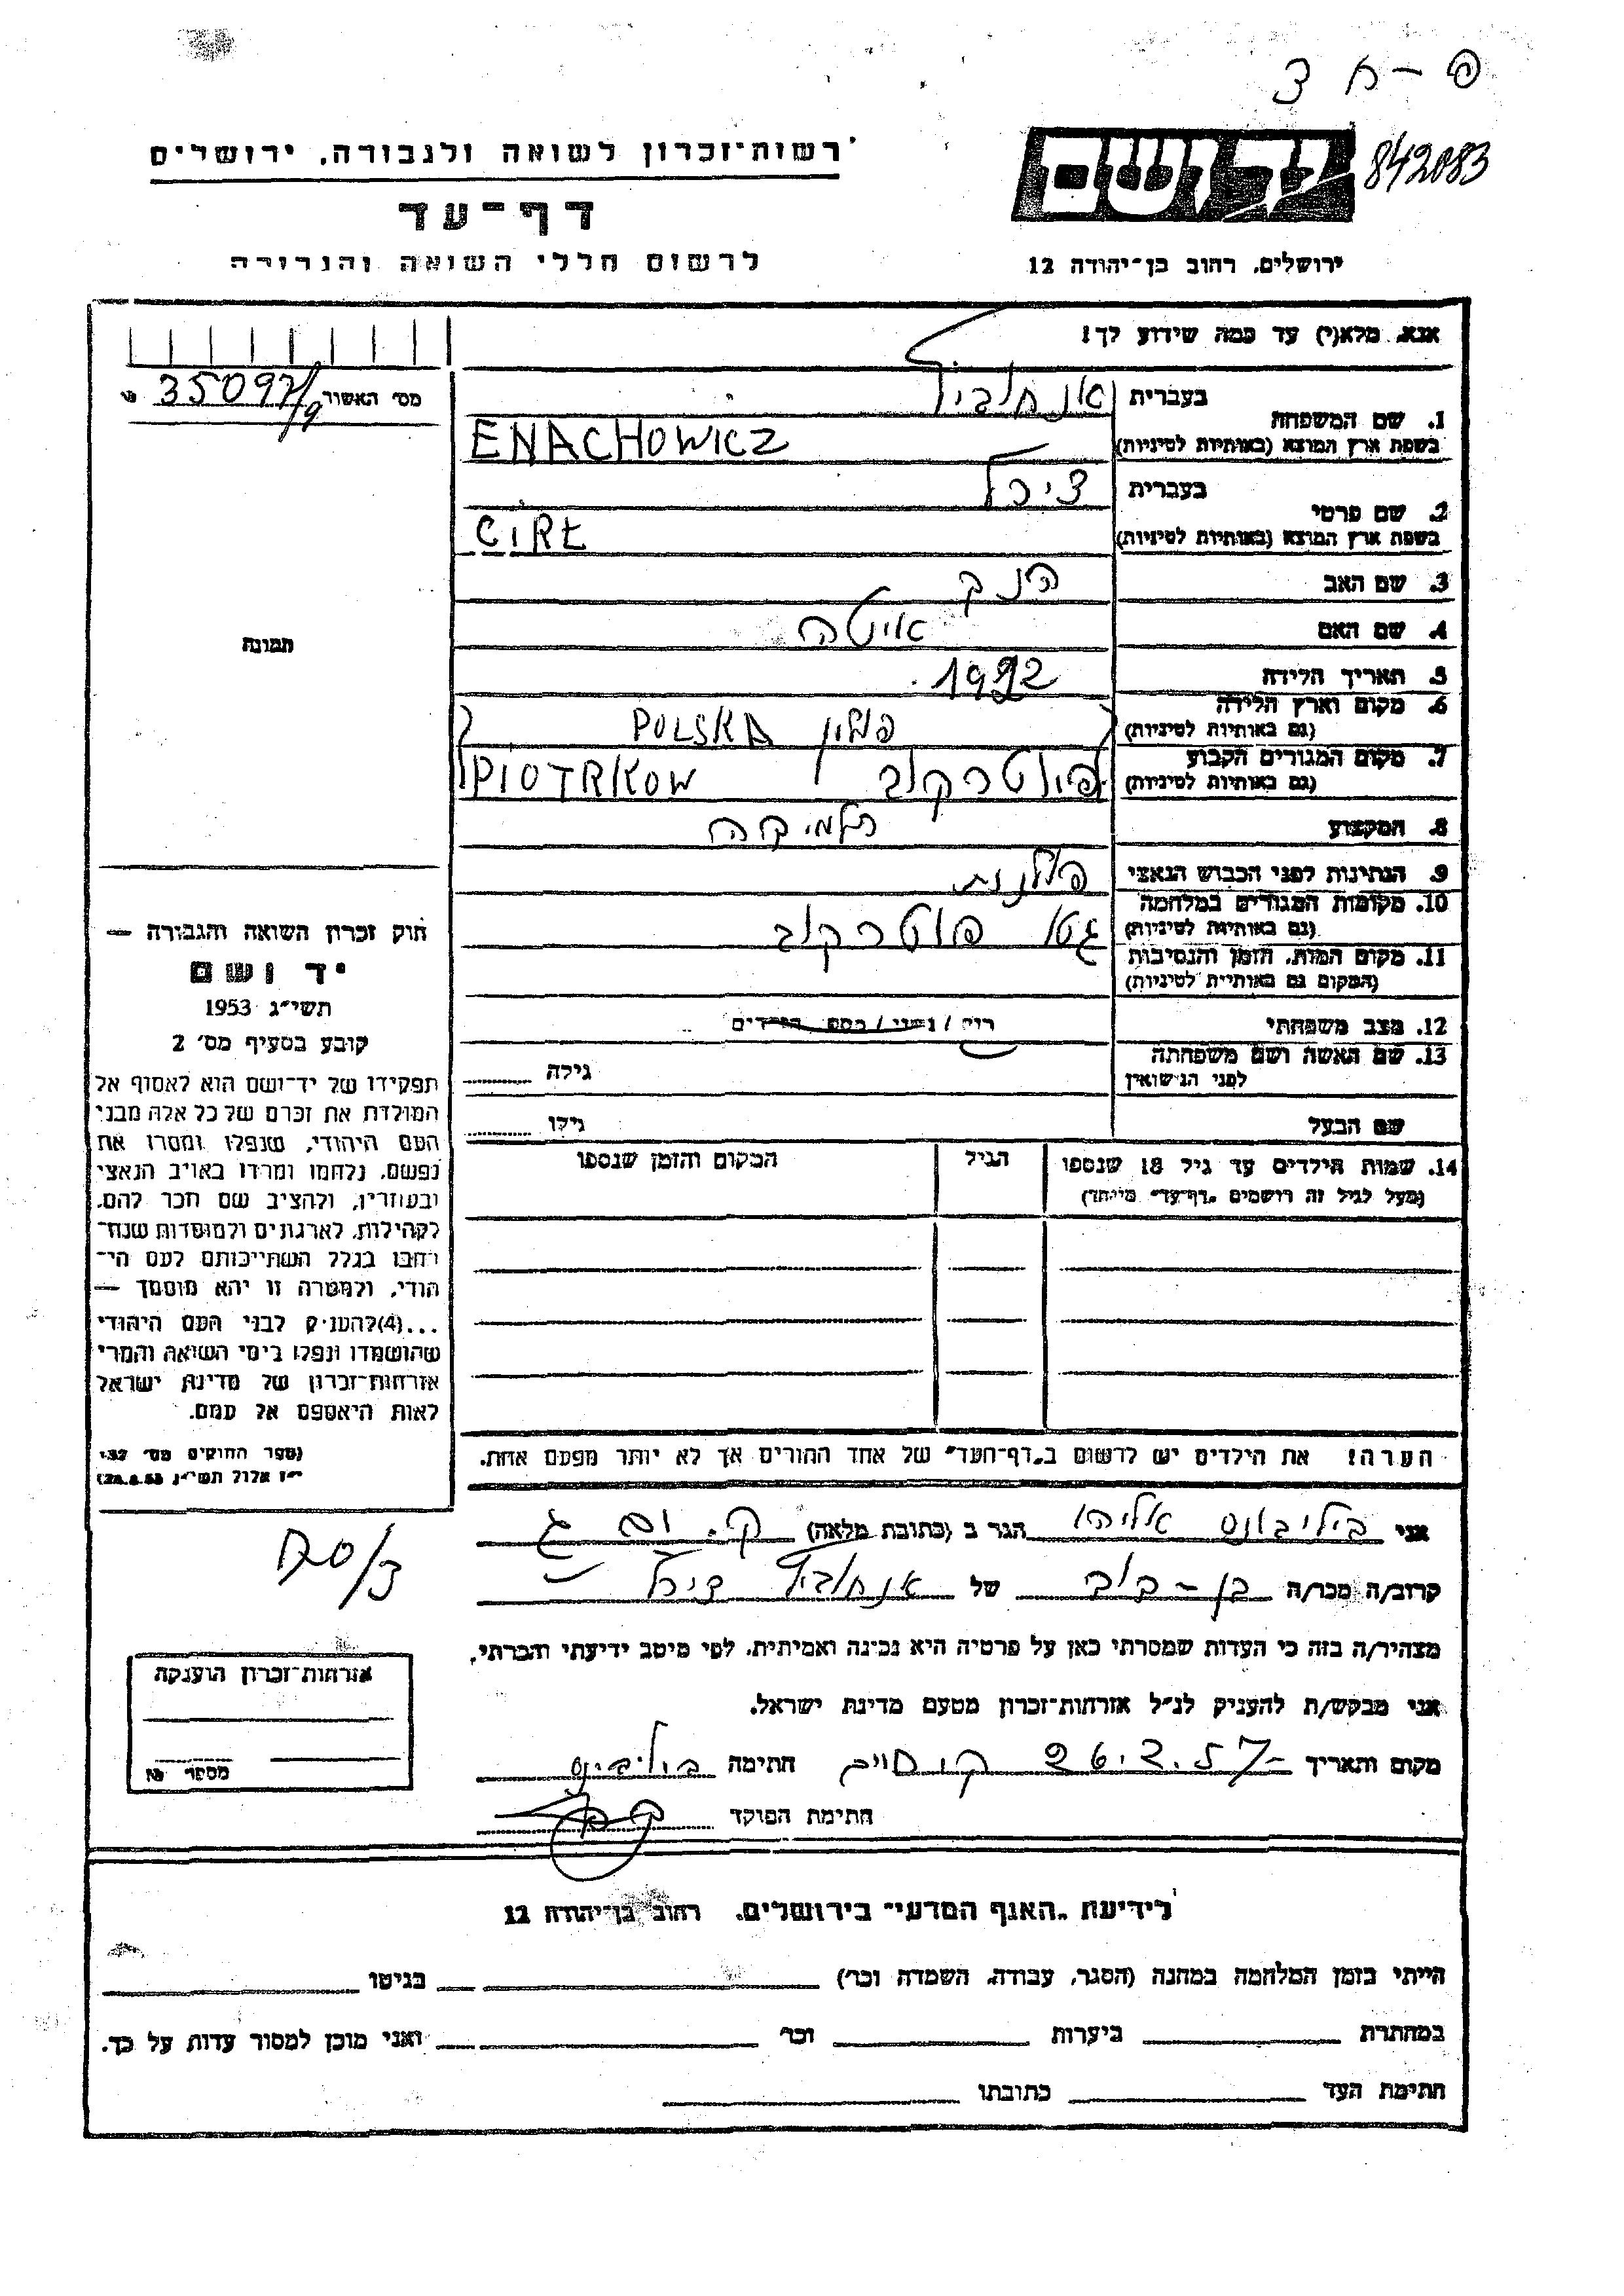 פ – ח 3
842083
יד ושם
ירושלים, רחוב בן־יהודה 12
רשות־זכרון לשואה ולגבורה, ירושלים
דף־עד
לרשום חללי השואה והגבורה
אנא, מלא(י) עד כמה שידוע לך!
מס׳ האשור 35097/9
תמונה
1. שם המשפחה
בעברית אנחוביץ
בשפת ארץ המוצא (באותיות לטיניות) ENACHOWICZ
2. שם פרטי
בעברית צירל
בשפת ארץ המוצא (באותיות לטיניות) CIRL
3. שם האב
4. שם האם איטה
5. תאריך הלידה
6. מקום וארץ הלידה
(גם באותיות לטיניות) פולין POLSKA
7. מקום המגורים הקבוע
(גם באותיות לטיניות) פיוטרקוב PIOTRKOW
8. המקצוע תלמידה
9. הנתינות לפני הכבוש הנאצי פולנית
10. מקומות המגורים במלחמה
(גם באותיות לטיניות) גטו פוטרקוב
11. מקום המות, הזמן והנסיבות
(המקום גם באותיות לטיניות)
12. מצב משפחתי רוק / נשוי / מספר הילדים
13. שם האשה ושם משפחתה
לפני הנישואין
גילה
שם הבעל
גילו
14. שמות הילדים עד גיל 18 שנספו
(מעל לגיל זה רושמים „דף־עד״ מיוחד)
הגיל
המקום והזמן שנספו
הערה! את הילדים יש לרשום ב„דף־העד״ של אחד ההורים אך לא יותר מפעם אחת.
חוק זכרון השואה והגבורה —
יד ושם
תשי״ג 1953
קובע בסעיף מס׳ 2
תפקידו של יד־ושם הוא לאסוף אל
המולדת את זכרם של כל אלה מבני
העם היהודי, שנפלו ומסרו את
נפשם, נלחמו ומרדו באויב הנאצי
ובעוזריו, ולהציב שם וזכר להם,
לקהילות, לארגונים ולמוסדות שנח־
רבו בגלל השתייכותם לעם הי־
הודי, ולמטרה זו יהא מוסמך —
...(4)להעניק לבני העם היהודי
שהושמדו ונפלו בימי השואה והמרי
אזרחות־זכרון של מדינת ישראל
לאות היאספם אל עמם.
(ספר החוקים מס׳ 132
י״ז אלול תשי״ג 28.8.53)
אני אליהו הגר ב (כתובת מלאה)
קרוב/ה מכר/ה בן - דוב של אנחוביץ צירל
מצהיר/ה בזה כי העדות שמסרתי כאן על פרטיה היא נכונה ואמיתית, לפי מיטב ידיעתי והכרתי,
אני מבקש/ת להעניק לנ״ל אזרחות־זכרון מטעם מדינת ישראל.
מקום והתאריך חתימה
חתימת הפוקד
אזרחות־זכרון הוענקה
מספר №
לידיעת „האגף המדעי״ בירושלים, רחוב בן־יהודה 12
הייתי בזמן המלחמה במחנה (הסגר, עבודה, השמדה וכר׳) בגיטו
במחתרת ביערות וכר׳ ואני מוכן למסור עדות על כך.
חתימת העד כתובתו